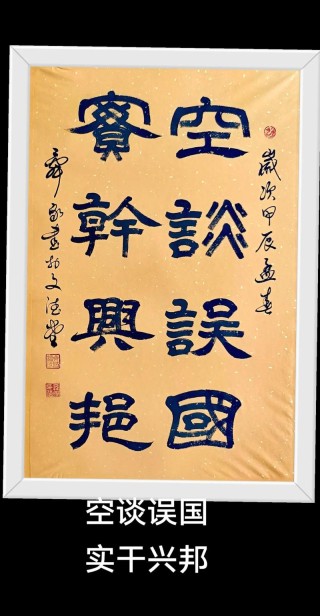 歲次甲辰孟春
空談誤國
實幹興邦
書於文德堂
空谈误国
实干兴邦